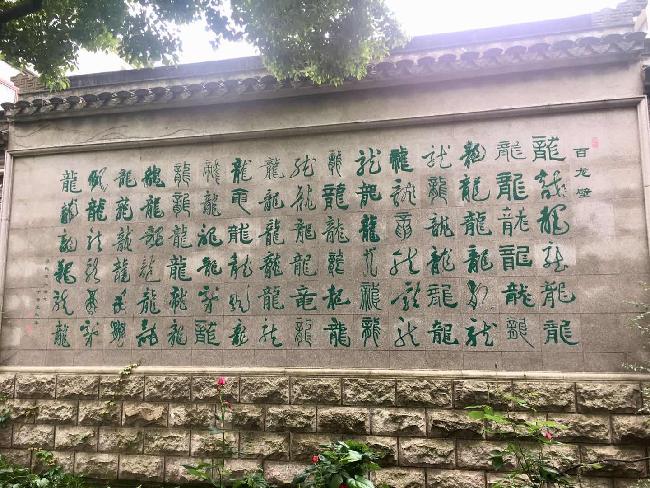 百龙壁
龍龍龍龍龍龍
龍龍龍龍龍龍
龍龍龍龍龍龍
龍龍龍龍龍龍
龍龍龍龍龍龍
龍龍龍龍龍龍
龍龍龍龍龍龍
龍龍龍龍龍龍
龍龍龍龍龍龍
龍龍龍龍龍龍
龍龍龍龍龍龍
龍龍龍龍龍龍
龍龍龍龍龍龍
龍龍龍龍龍龍
龍龍龍龍龍龍
龍龍龍龍龍龍